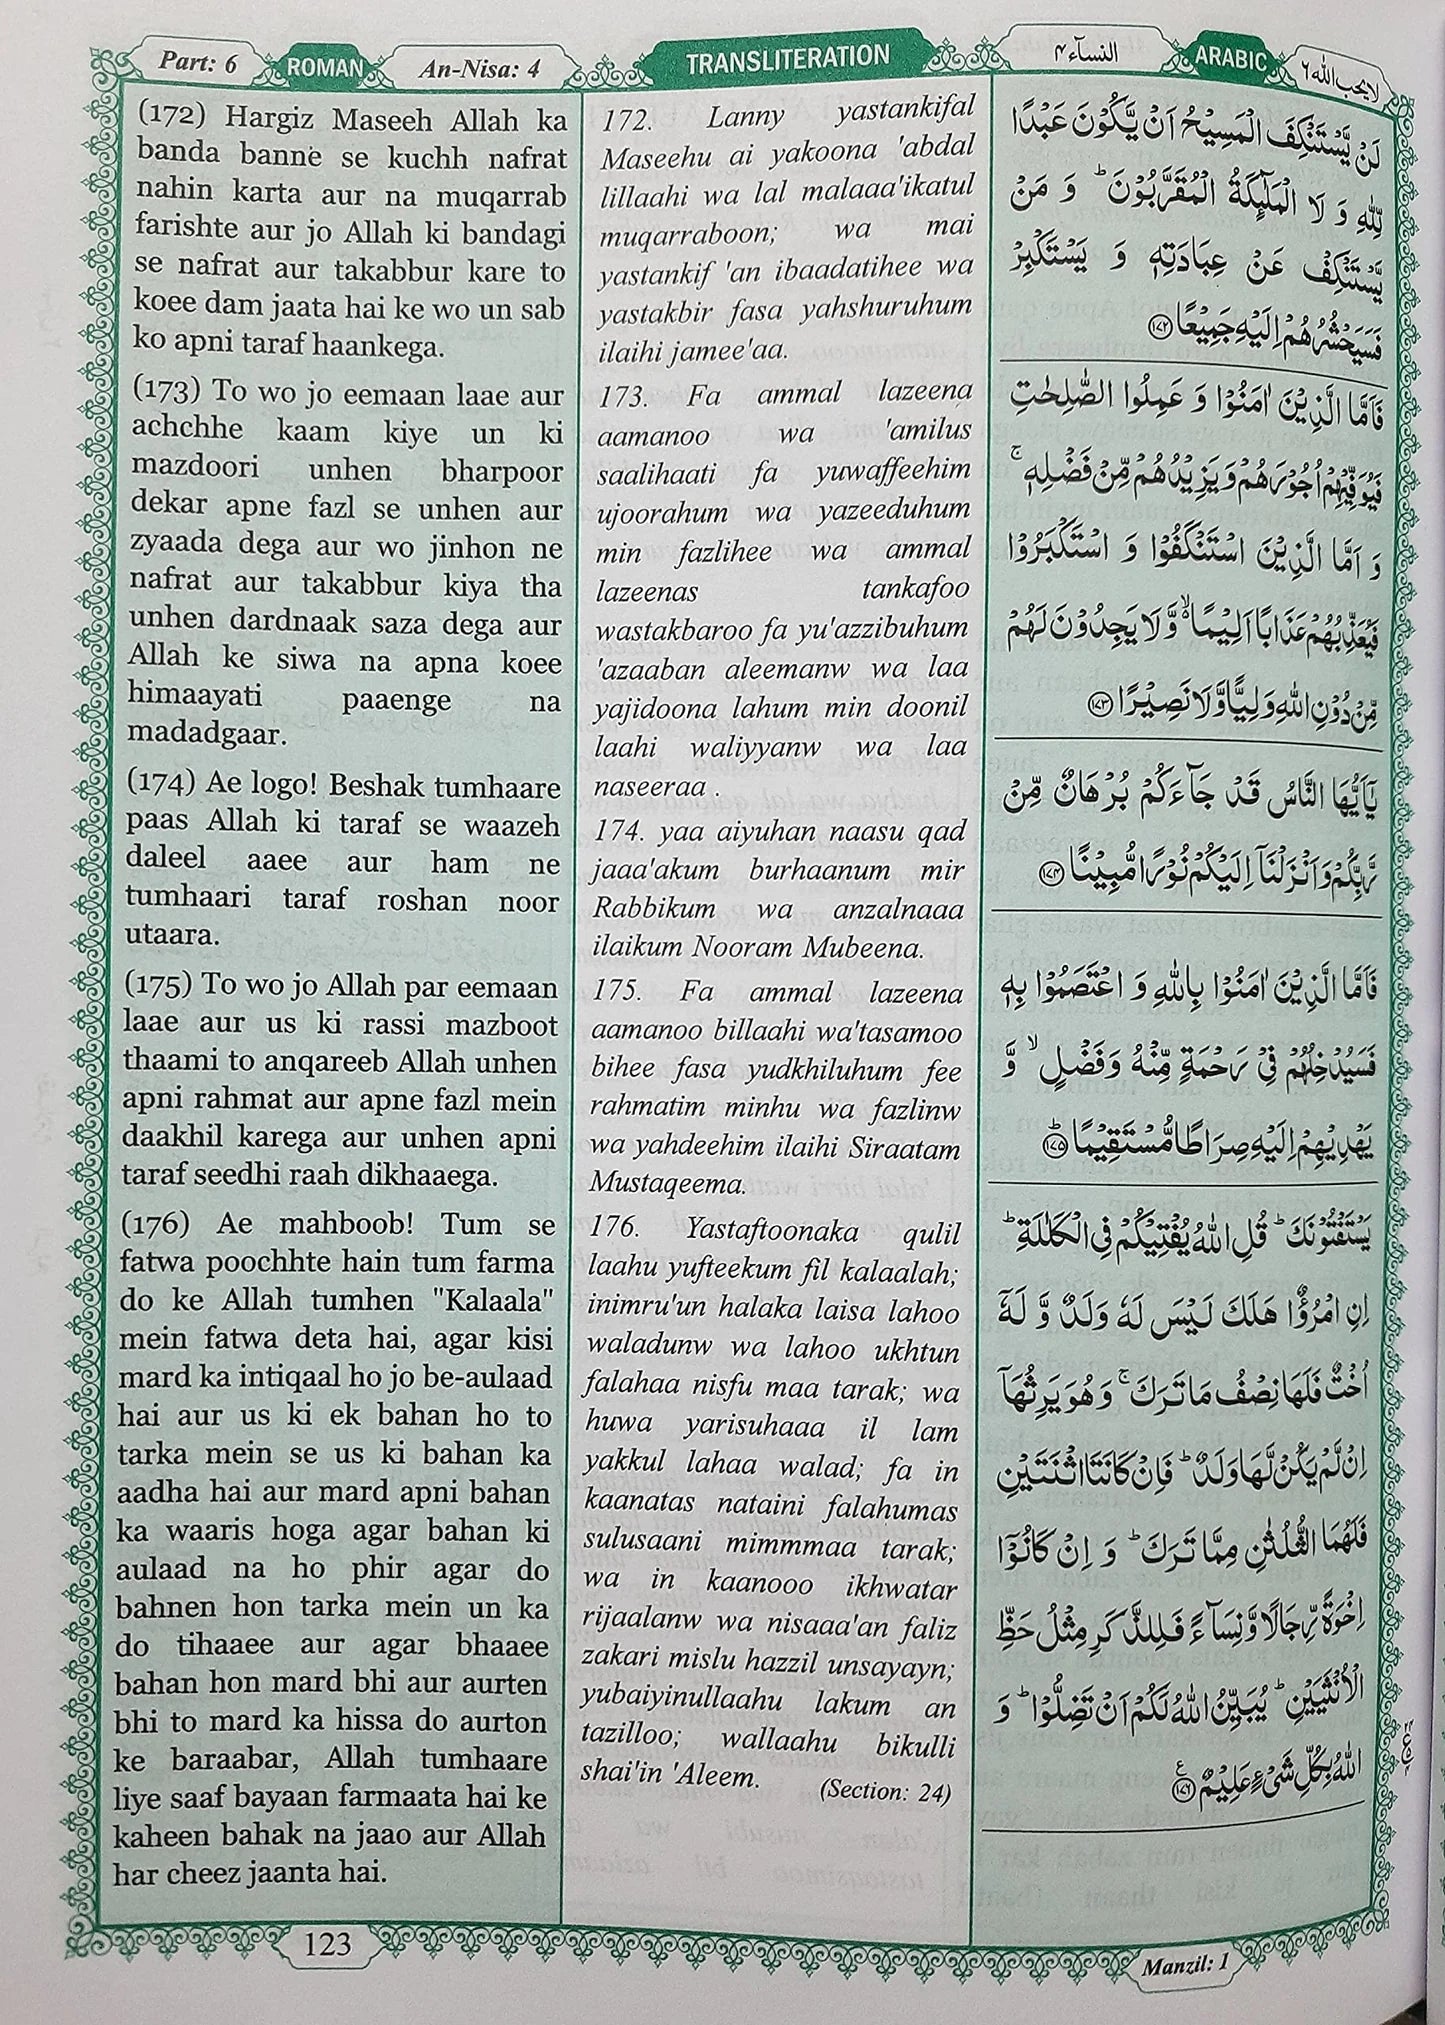 Part: 6
ROMAN
An-Nisa: 4
TRANSLITERATION
النسآء ۴
ARABIC
لا یحب الله ۶
(172) Hargiz Maseeh Allah ka
banda banne se kuchh nafrat
nahin karta aur na muqarrab
farishte aur jo Allah ki bandagi
se nafrat aur takabbur kare to
koee dam jaata hai ke wo un sab
ko apni taraf haankega.
(173) To wo jo eemaan laae aur
achchhe kaam kiye un ki
mazdoori unhen bharpoor
dekar apne fazl se unhen aur
zyaada dega aur wo jinhon ne
nafrat aur takabbur kiya tha
unhen dardnaak saza dega aur
Allah ke siwa na apna koee
himaayati paaenge na
madadgaar.
(174) Ae logo! Beshak tumhaare
paas Allah ki taraf se waazeh
daleel aaee aur ham ne
tumhaari taraf roshan noor
utaara.
(175) To wo jo Allah par eemaan
laae aur us ki rassi mazboot
thaami to anqareeb Allah unhen
apni rahmat aur apne fazl mein
daakhil karega aur unhen apni
taraf seedhi raah dikhaaega.
(176) Ae mahboob! Tum se
fatwa poochhte hain tum farma
do ke Allah tumhen "Kalaala"
mein fatwa deta hai, agar kisi
mard ka intiqaal ho jo be-aulaad
hai aur us ki ek bahan ho to
tarka mein se us ki bahan ka
aadha hai aur mard apni bahan
ka waaris hoga agar bahan ki
aulaad na ho phir agar do
bahnen hon tarka mein un ka
do tihaaee aur agar bhaaee
bahan hon mard bhi aur aurten
bhi to mard ka hissa do aurton
ke baraabar, Allah tumhaare
liye saaf bayaan farmaata hai ke
kaheen bahak na jaao aur Allah
har cheez jaanta hai.
172. Lanny yastankifal
Maseehu ai yakoona 'abdal
lillaahi wa lal malaaa'ikatul
muqarraboon; wa mai
yastankif 'an ibaadatihee wa
yastakbir fasa yahshuruhum
ilaihi jamee'aa.
173. Fa ammal lazeena
aamanoo wa 'amilus
saalihaati fa yuwaffeehim
ujoorahum wa yazeeduhum
min fazlihee wa ammal
lazeenas tankafoo
wastakbaroo fa yu'azzibuhum
'azaaban aleemanw wa laa
yajidoona lahum min doonil
laahi waliyyanw wa laa
naseeraa .
174. yaa aiyuhan naasu qad
jaaa'akum burhaanum mir
Rabbikum wa anzalnaaa
ilaikum Nooram Mubeena.
175. Fa ammal lazeena
aamanoo billaahi wa'tasamoo
bihee fasa yudkhiluhum fee
rahmatim minhu wa fazlinw
wa yahdeehim ilaihi Siraatam
Mustaqeema.
176. Yastaftoonaka qulil
laahu yufteekum fil kalaalah;
inimru'un halaka laisa lahoo
waladunw wa lahoo ukhtun
falahaa nisfu maa tarak; wa
huwa yarisuhaaa il lam
yakkul lahaa walad; fa in
kaanatas nataini falahumas
sulusaani mimmmaa tarak;
wa in kaanooo ikhwatar
rijaalanw wa nisaaa'an faliz
zakari mislu hazzil unsayayn;
yubaiyinullaahu lakum an
tazilloo; wallaahu bikulli
shai'in 'Aleem. (Section: 24)
لَنْ یَّسْتَنْكِفَ الْمَسِیْحُ اَنْ یَّكُوْنَ عَبْدًا
لِّلّٰهِ وَ لَا الْمَلٰٓىٕكَةُ الْمُقَرَّبُوْنَ ؕ وَ مَنْ
یَّسْتَنْكِفْ عَنْ عِبَادَتِهٖ وَ یَسْتَكْبِرْ
فَسَیَحْشُرُهُمْ اِلَیْهِ جَمِیْعًا ۝۱۷۲
فَاَمَّا الَّذِیْنَ اٰمَنُوْا وَ عَمِلُوا الصّٰلِحٰتِ
فَیُوَفِّیْهِمْ اُجُوْرَهُمْ وَ یَزِیْدُهُمْ مِّنْ فَضْلِهٖ ۚ
وَ اَمَّا الَّذِیْنَ اسْتَنْكَفُوْا وَ اسْتَكْبَرُوْا
فَیُعَذِّبُهُمْ عَذَابًا اَلِیْمًا ۙ۬ وَّ لَا یَجِدُوْنَ لَهُمْ
مِّنْ دُوْنِ اللّٰهِ وَلِیًّا وَّ لَا نَصِیْرًا ۝۱۷۳
یٰۤاَیُّهَا النَّاسُ قَدْ جَآءَكُمْ بُرْهَانٌ مِّنْ
رَّبِّكُمْ وَ اَنْزَلْنَاۤ اِلَیْكُمْ نُوْرًا مُّبِیْنًا ۝۱۷۴
فَاَمَّا الَّذِیْنَ اٰمَنُوْا بِاللّٰهِ وَ اعْتَصَمُوْا بِهٖ
فَسَیُدْخِلُهُمْ فِیْ رَحْمَةٍ مِّنْهُ وَ فَضْلٍ ۙ وَّ
یَهْدِیْهِمْ اِلَیْهِ صِرَاطًا مُّسْتَقِیْمًا ؕ۝۱۷۵
یَسْتَفْتُوْنَكَ ؕ قُلِ اللّٰهُ یُفْتِیْكُمْ فِی الْكَلٰلَةِ ؕ
اِنِ امْرُؤٌا هَلَكَ لَیْسَ لَهٗ وَلَدٌ وَّ لَهٗۤ
اُخْتٌ فَلَهَا نِصْفُ مَا تَرَكَ ۚ وَ هُوَ یَرِثُهَاۤ
اِنْ لَّمْ یَكُنْ لَّهَا وَلَدٌ ؕ فَاِنْ كَانَتَا اثْنَتَیْنِ
فَلَهُمَا الثُّلُثٰنِ مِمَّا تَرَكَ ؕ وَ اِنْ كَانُوْۤا
اِخْوَةً رِّجَالًا وَّ نِسَآءً فَلِلذَّكَرِ مِثْلُ حَظِّ
الْاُنْثَیَیْنِ ؕ یُبَیِّنُ اللّٰهُ لَكُمْ اَنْ تَضِلُّوْا ؕ وَ
اللّٰهُ بِكُلِّ شَیْءٍ عَلِیْمٌ ۝۱۷۶
123
Manzil: 1